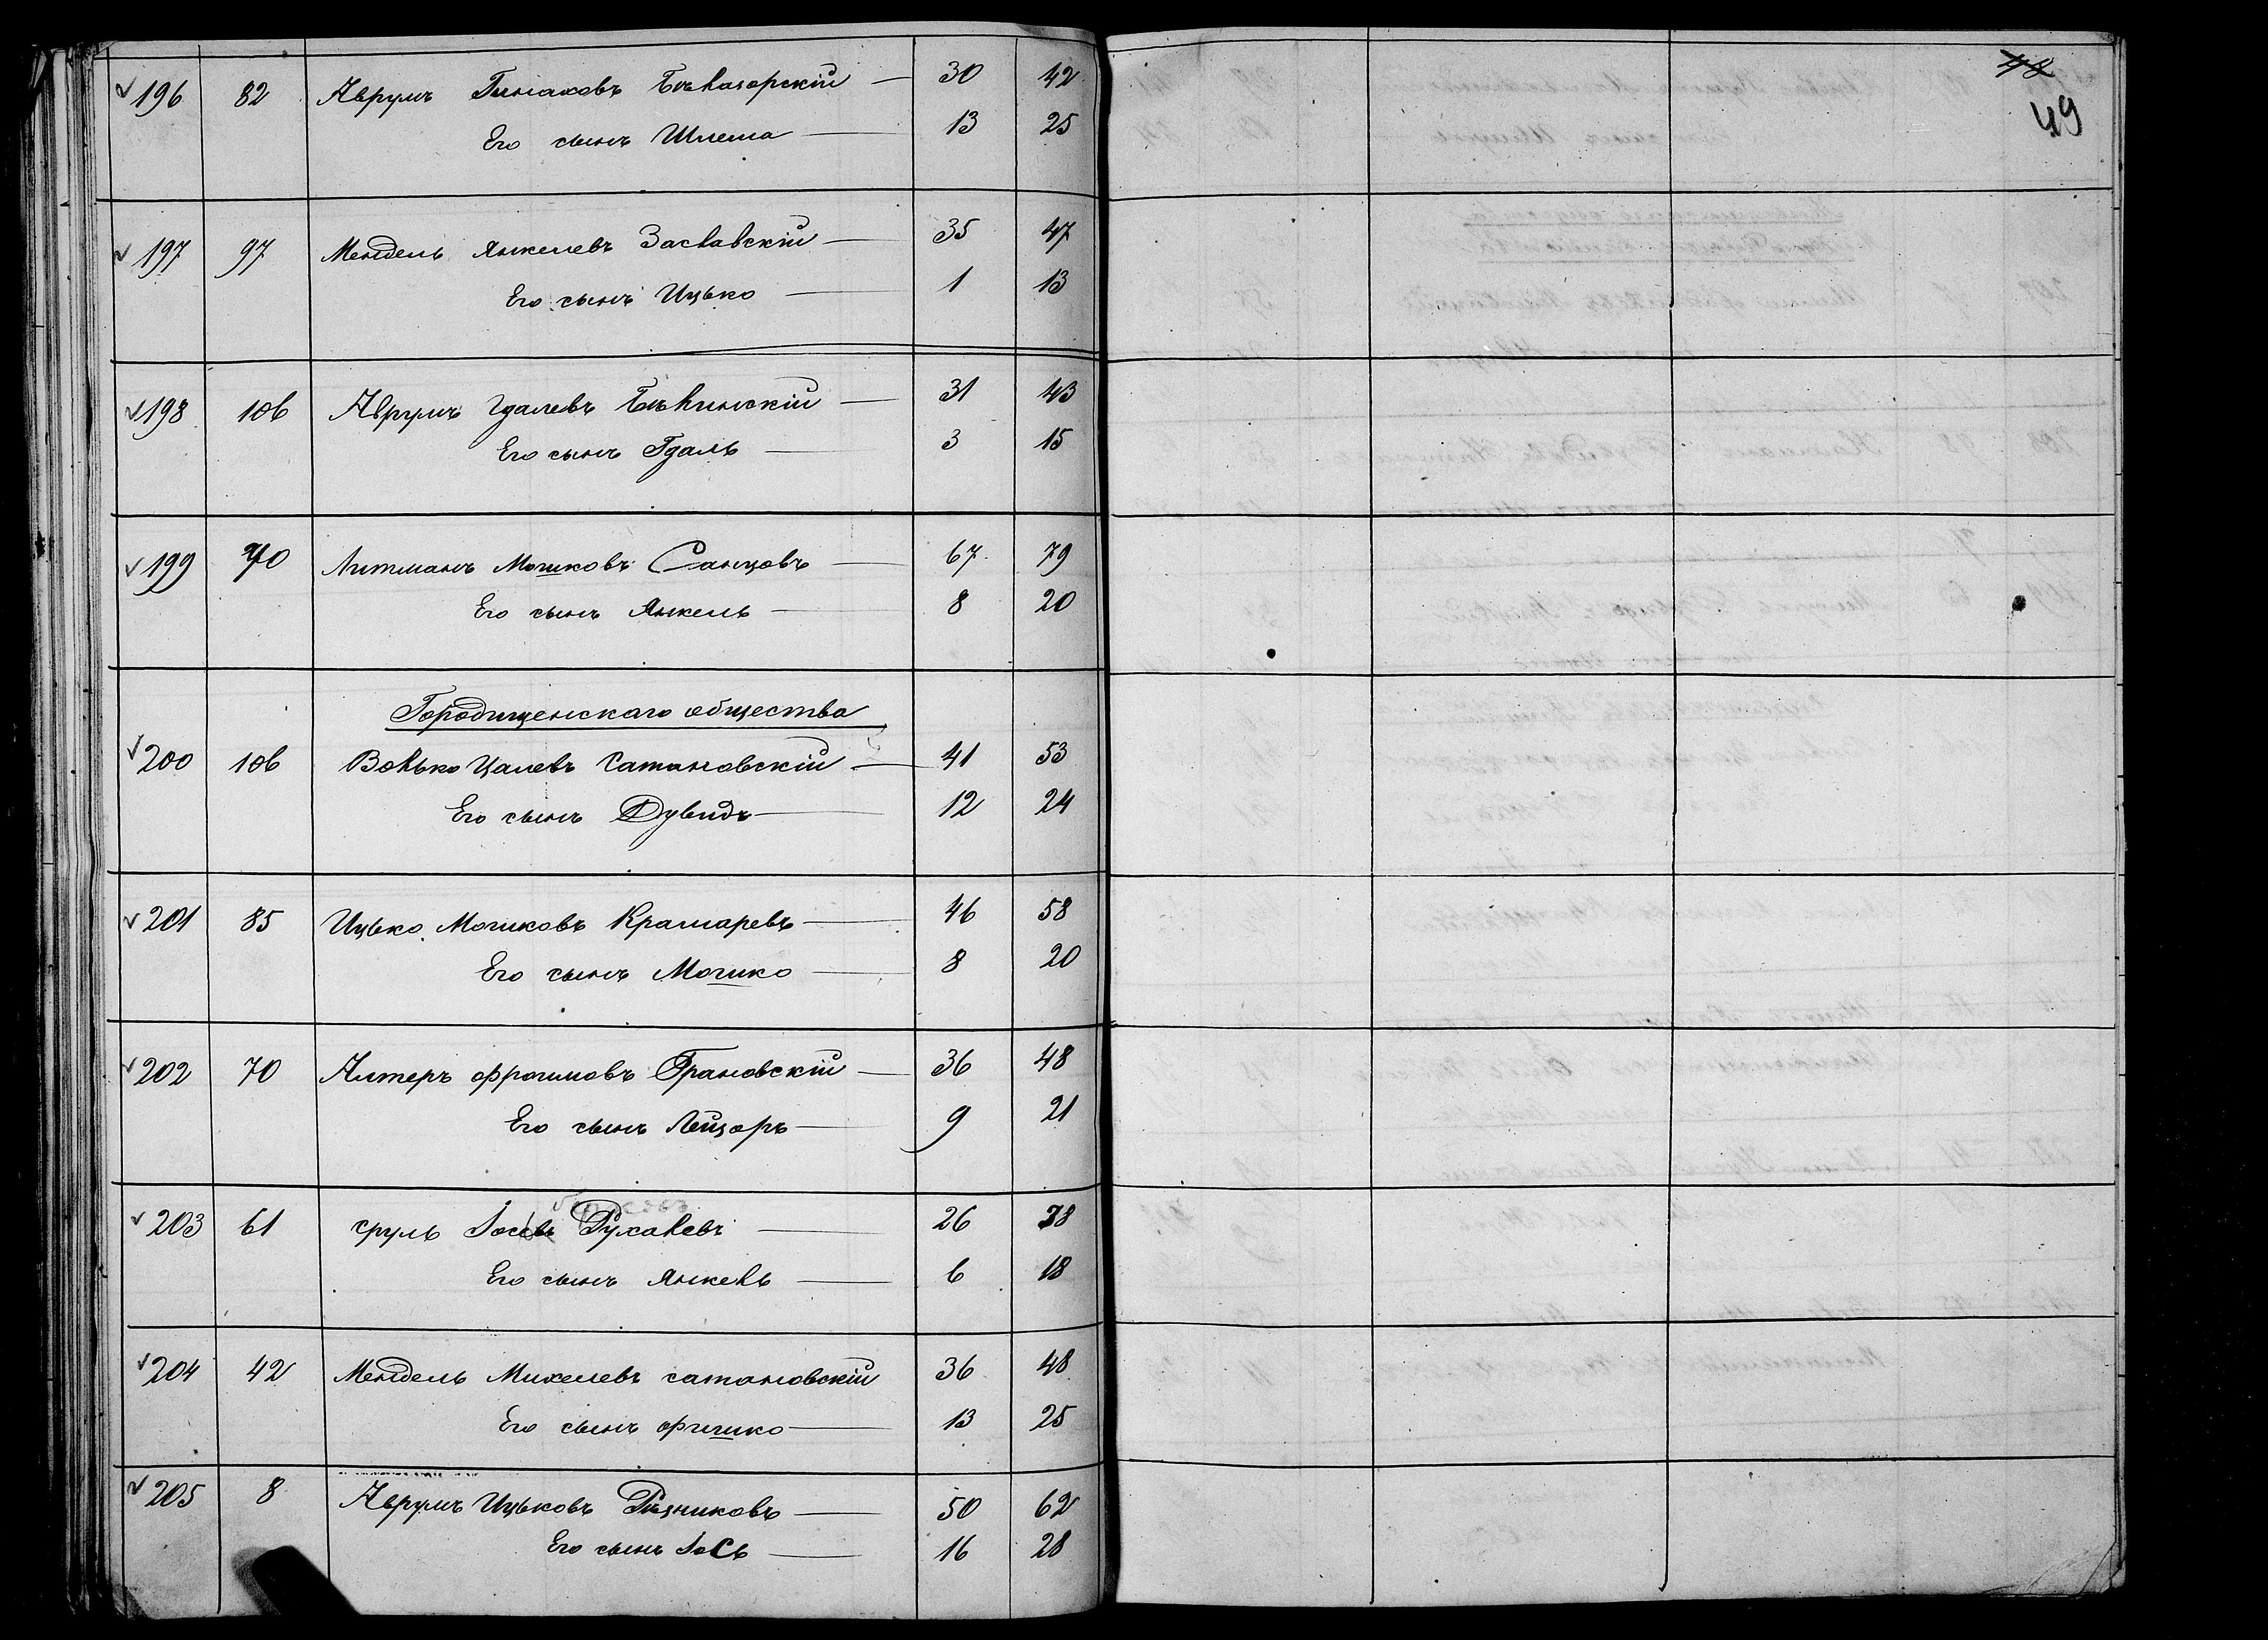 196 82 Аврумъ Пинсаховъ Бѣлазорскій — 30 42
Его сынъ Шлема — 13 25
197 97 Мендель Янкелевъ Заславскій — 35 47
Его сынъ Ицько — 1 13
198 106 Аврумъ Гдалевъ Бѣлинскій — 31 43
Его сынъ Гдаль — 3 15
199 70 Литманъ Мошковъ Санцовъ — 67 79
Его сынъ Янкель — 8 20
Городищенскаго общества
200 106 Волько Цалевъ Сатановскій — 41 53
Его сынъ Дувидъ — 12 24
201 85 Ицько Мошковъ Крамаревъ — 46 58
Его сынъ Мошко — 8 20
202 70 Алтеръ Фроимовъ Грановскій — 36 48
Его сынъ Лейзоръ — 9 21
203 61 Сруль Іосевъ Рухалевъ — 26 38
Его сынъ Янкель — 6 18
204 42 Мендель Михелевъ Сатановскій 36 48
Его сынъ Фишко — 13 25
205 8 Аврумъ Ицьковъ Рѣзниковъ — 50 62
Его сынъ Іось — 16 28
48
49